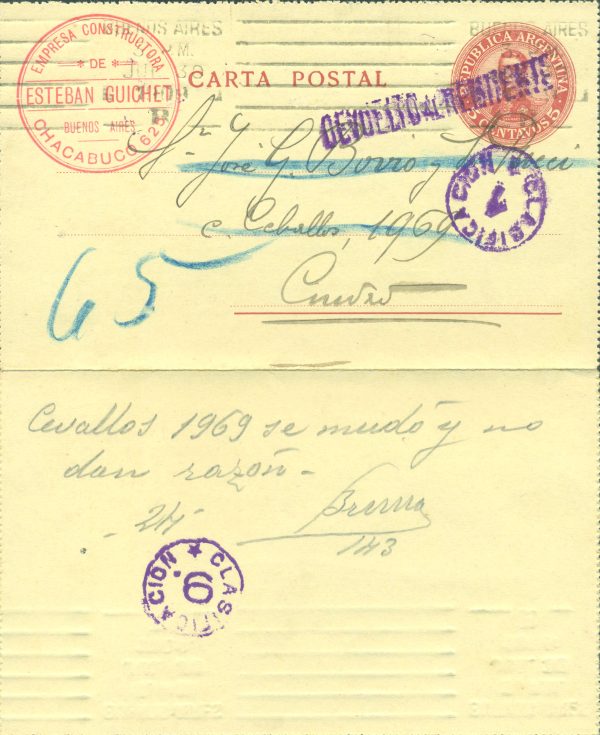 BUENOS AIRES
BUENOS AIRES
EMPRESA CONSTRUCTORA
* DE *
ESTEBAN GUICHET
BUENOS AIRES
CHACABUCO 625
CARTA POSTAL
REPUBLICA ARGENTINA
5 CENTAVOS 5
DEVUELTO AL REMITENTE
Sr. José G. Borro y
c. Ceballos, 1969
CLASIFICACION 7
65
Cevallos 1969 se mudó y no
dan razón -
- 24 -
143
CLASIFICACION 6